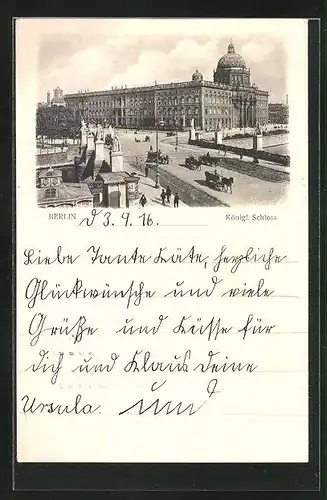 BERLIN
Königl. Schloss
d 3. 9. 16.
Liebe Tante Käte, herzliche
Glückwünsche und viele
Grüße und Küsse für
dich und Klaus deine
Ursula.